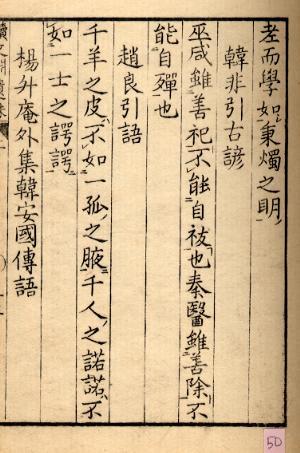 老而學如秉燭之明
韓非引古諺
巫咸雖善祀不能自祓也秦醫雖善除不
能自殫也
趙良引語
千羊之皮不如一孤之腋千人之諾諾不
如一士之諤諤
楊升庵外集韓安國傳語
50